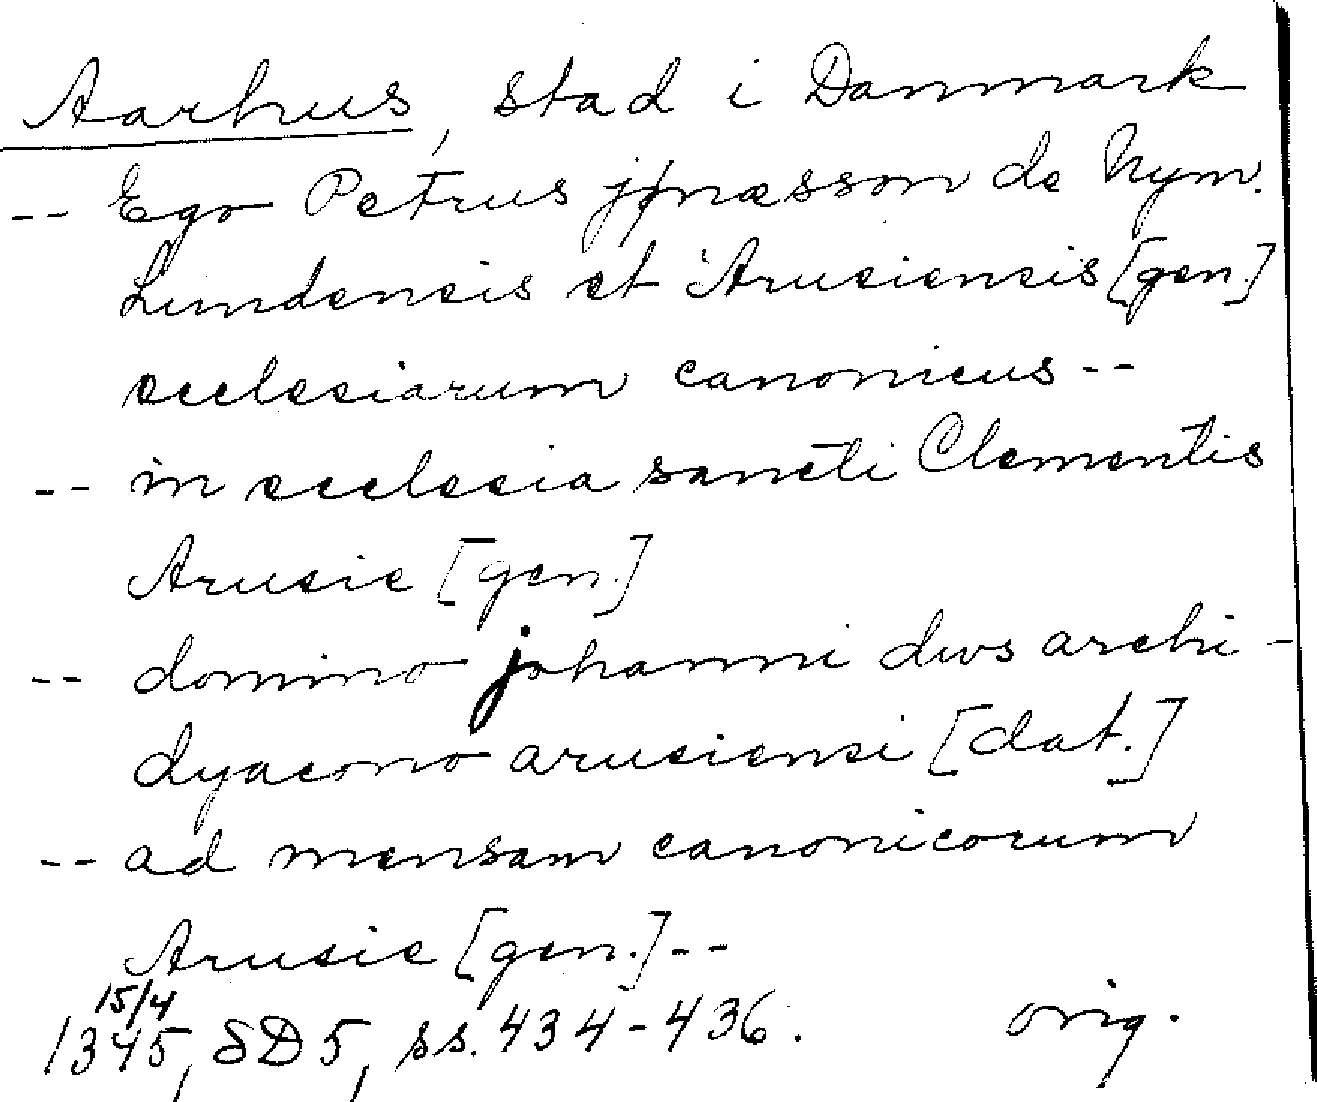 Aarhus, stad i Danmark
-- Ego Petrus jønæsson de Nym.
Lundensis et Arusiensis [gen.]
ecclesiarum canonicus --
-- in ecclesia sancti Clementis
Arusie [gen.]
-- domino johanni dws archi-
dyacono arusiensi [dat.]
-- ad mensam canonicorum
Arusie [gen.] --
15/4
1345, SD 5, ss. 434-436. orig.